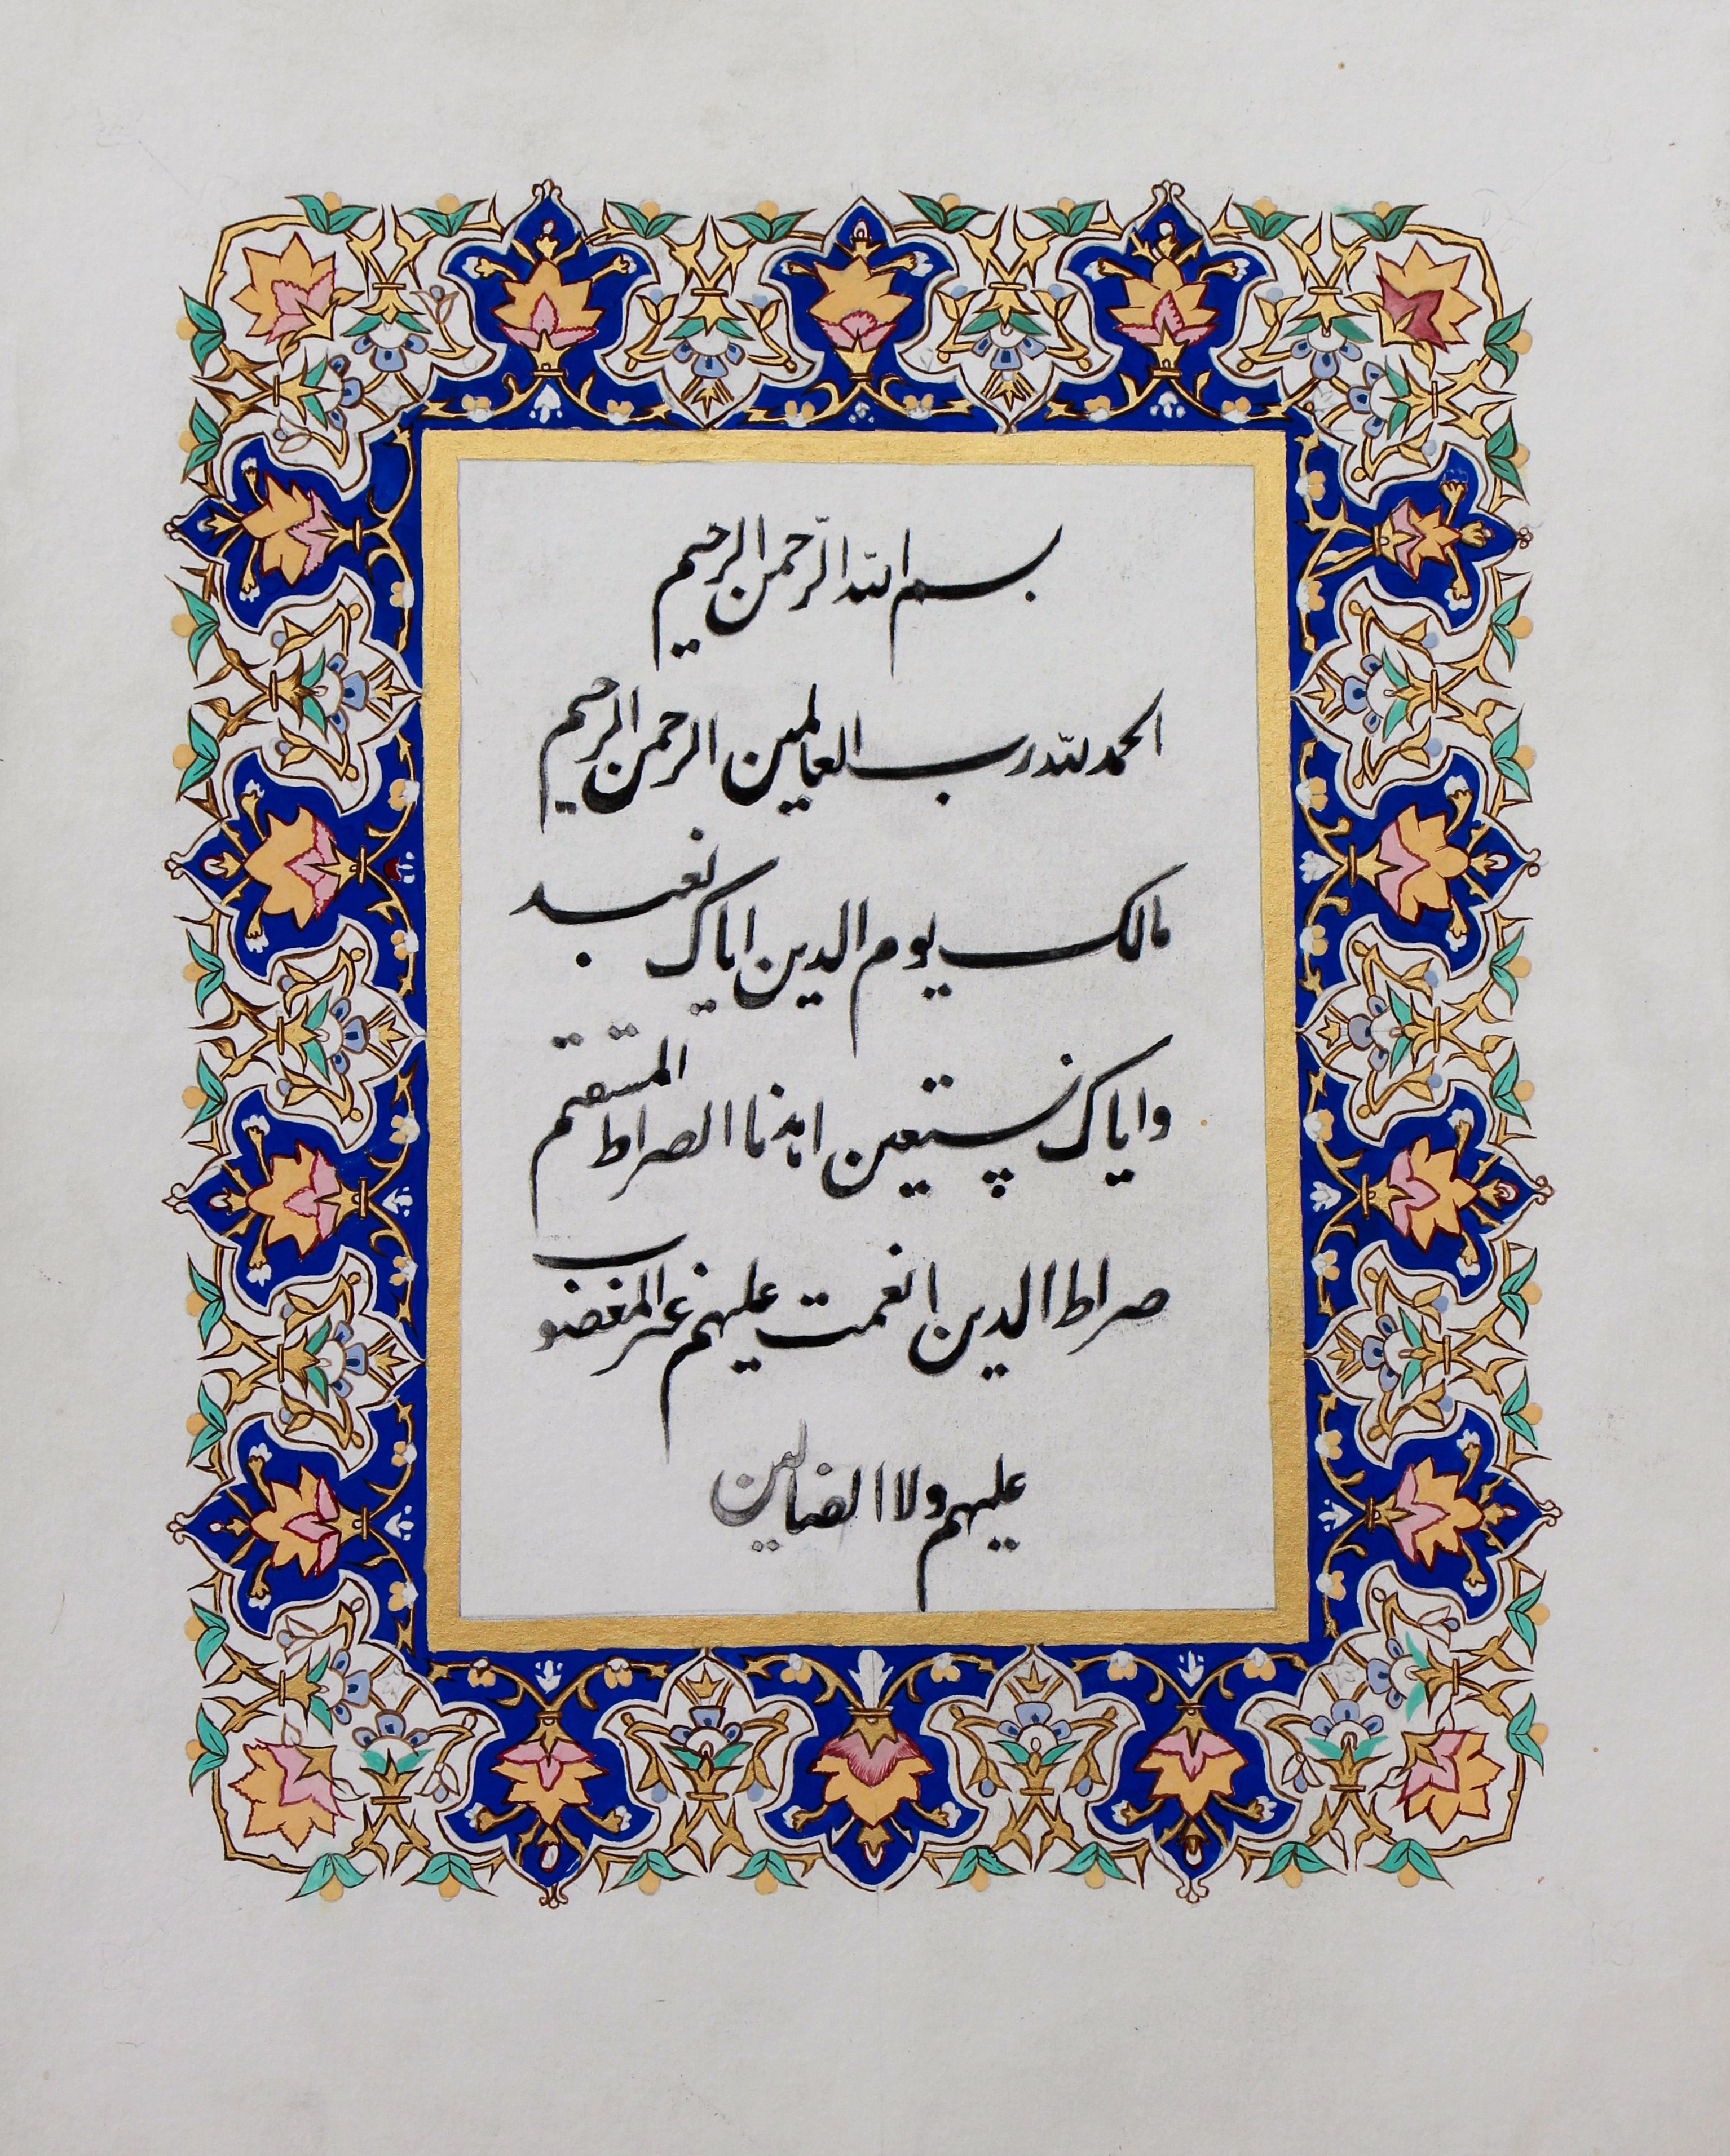 بسم الله الرّحمن الرحيم
الحمد لله رب العالمين الرحمن الرحيم
مالك يوم الدين اياك نعبد
واياك نستعين اهدنا الصراط المستقيم
صراط الدين انعمت عليهم غير المغضوب
عليهم ولا الضالين